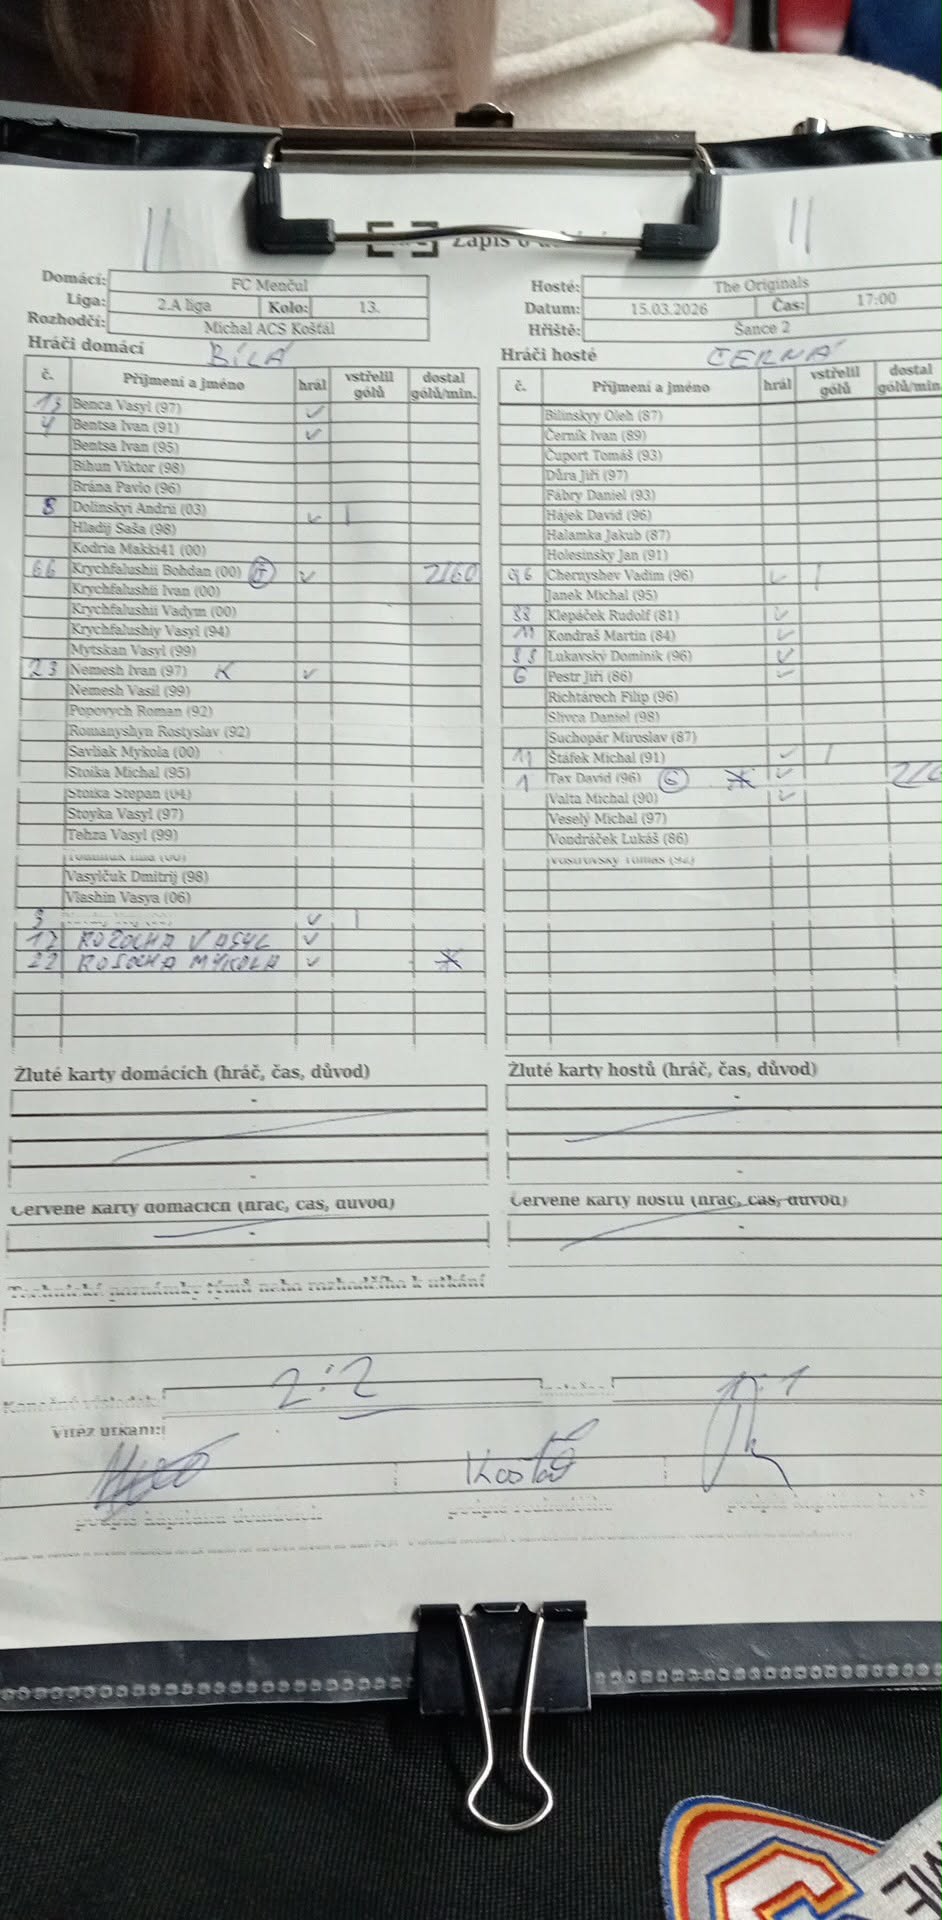 Zápis o
Domácí: FC Menčul
Liga: 2.A liga Kolo: 13.
Rozhodčí: Michal ACS Košťál
Hosté: The Originals
Datum: 15.03.2026 Čas: 17:00
Hřiště: Šance 2
Hráči domácí BÍLÁ
č. Příjmení a jméno hrál vstřelil gólů dostal gólů/min.
13 Benca Vasyl (97) ✓
4 Bentsa Ivan (91) ✓
Bentsa Ivan (95)
Bihun Viktor (98)
Brána Pavlo (96)
8 Dolinskyi Andrii (03) ✓ |
Hladij Saša (98)
Kodria Makki41 (00)
66 Krychfalushii Bohdan (00) ✓ 2/60
Krychfalushii Ivan (00)
Krychfalushii Vadym (00)
Krychfalushiy Vasyl (94)
Mytskan Vasyl (99)
23 Nemesh Ivan (97) K ✓
Nemesh Vasil (99)
Popovych Roman (92)
Romanyshyn Rostyslav (92)
Savliak Mykola (00)
Stoika Michal (95)
Stoika Stepan (04)
Stoyka Vasyl (97)
Tehza Vasyl (99)
Vasylčuk Dmitrij (98)
Vlashin Vasya (06)
9 ✓ |
17 ROZOCHA VASYL ✓
22 ROSOCHA MYKOLA ✓ *
Hráči hosté ČERNÁ
č. Příjmení a jméno hrál vstřelil gólů dostal gólů/min.
Bilinskyy Oleh (87)
Černík Ivan (89)
Čuport Tomáš (93)
Důra Jiří (97)
Fábry Daniel (93)
Hájek David (96)
Halamka Jakub (87)
Holesinsky Jan (91)
96 Chernyshev Vadim (96) ✓ |
Janek Michal (95)
88 Klepáček Rudolf (81) ✓
Kondraš Martin (84) ✓
33 Lukavský Dominik (96) ✓
6 Pestr Jiří (86) ✓
Richtárech Filip (96)
Slivca Daniel (98)
Suchopár Miroslav (87)
11 Štáfek Michal (91) ✓ |
1 Tax David (96) G * ✓
Valta Michal (90) ✓
Veselý Michal (97)
Vondráček Lukáš (86)
Žluté karty domácích (hráč, čas, důvod)
-
-
Žluté karty hostů (hráč, čas, důvod)
-
-
Červené karty domácích (hráč, čas, důvod)
-
Červené karty hostů (hráč, čas, důvod)
-
Technické poznámky týmů nebo rozhodčího k utkání
2:2
1:1
Vítěz utkání:
Košťál
podpis kapitána domácích
podpis rozhodčího